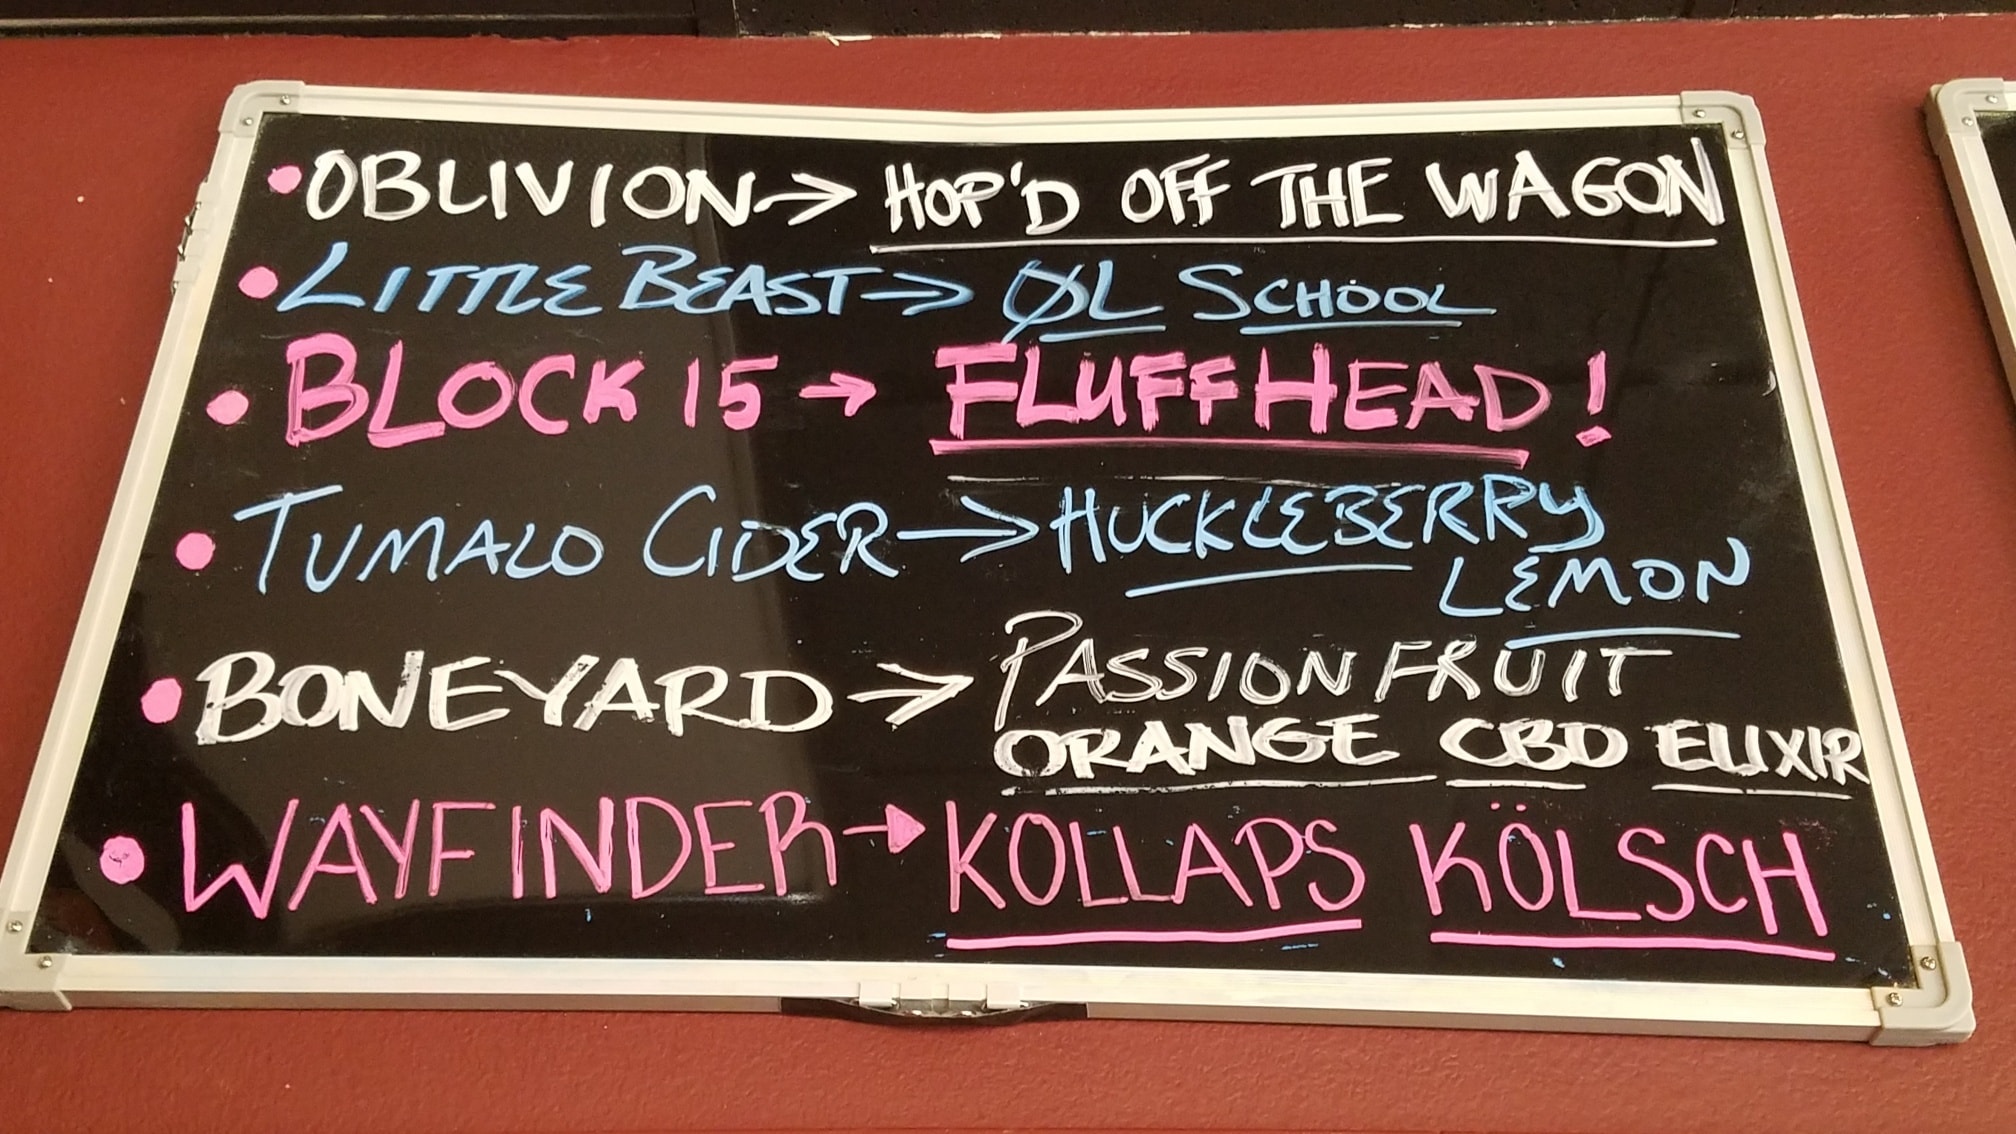 • OBLIVION → HOP'D OFF THE WAGON
• LITTLE BEAST → ØL SCHOOL
• BLOCK 15 → FLUFFHEAD!
• TUMALO CIDER → HUCKLEBERRY
LEMON
• BONEYARD → PASSIONFRUIT
ORANGE CBD ELIXIR
• WAYFINDER → KOLLAPS KÖLSCH